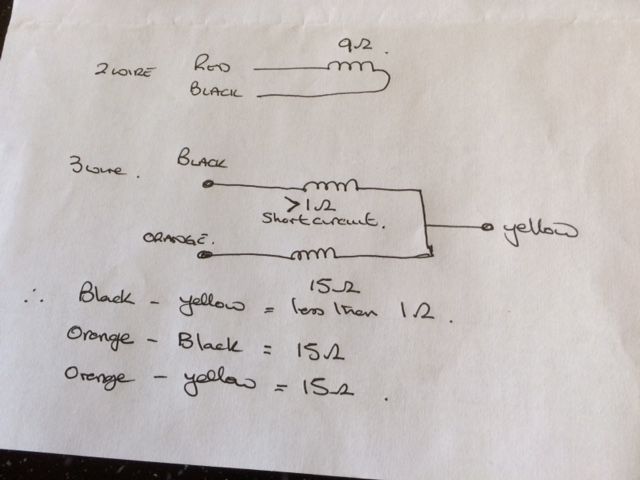 9Ω.
2 WIRE RED
BLACK
3 wire. BLACK
>1Ω
Short circuit.
yellow
ORANGE.
15Ω
∴ Black - yellow = less than 1Ω.
Orange - Black = 15Ω
Orange - yellow = 15Ω.